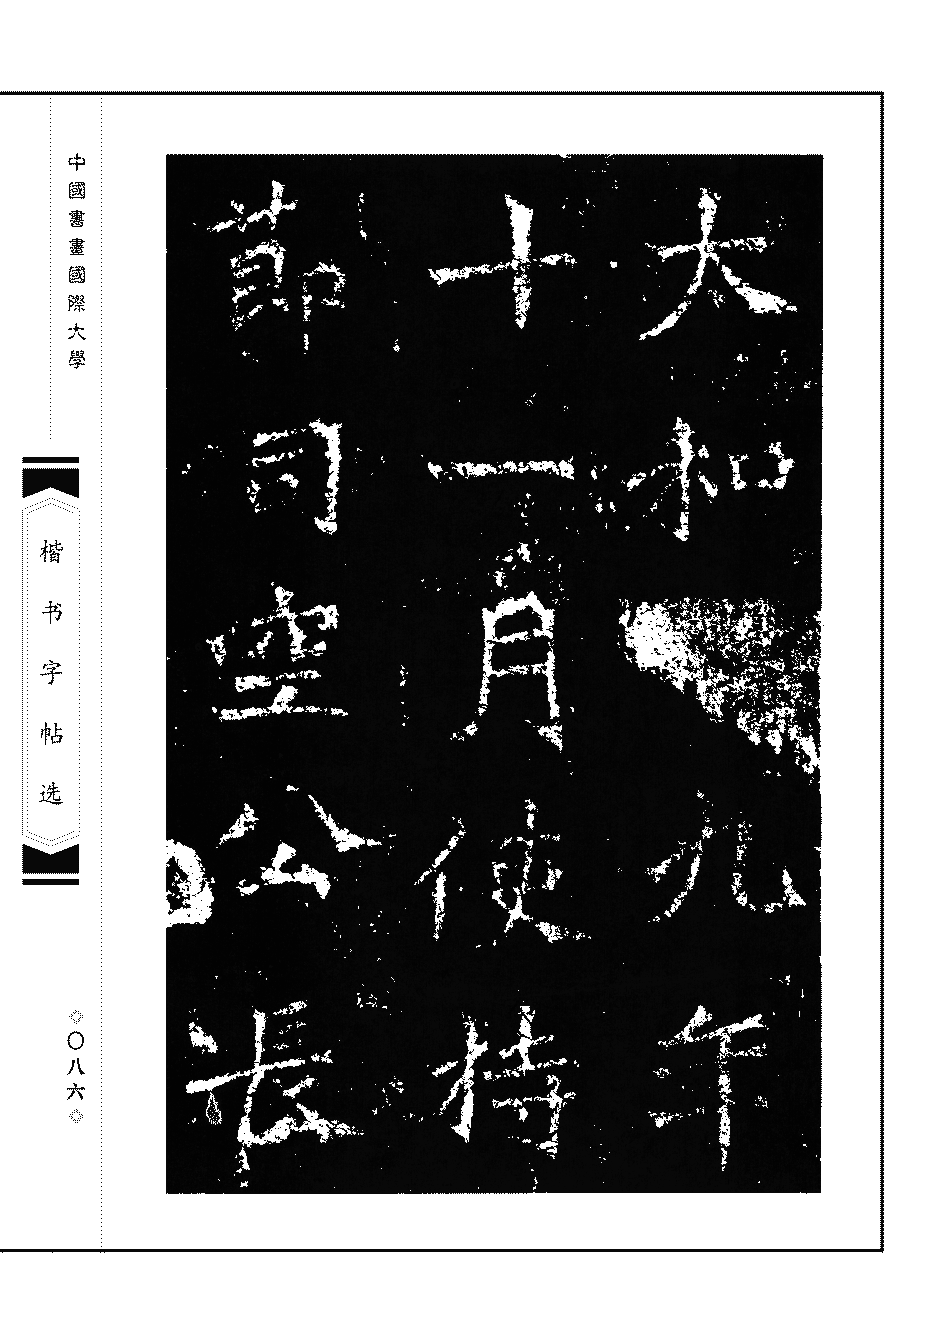 太和九年
十一月使持
節司空公長
中國書畫國際大學
楷书字帖选
〇八六